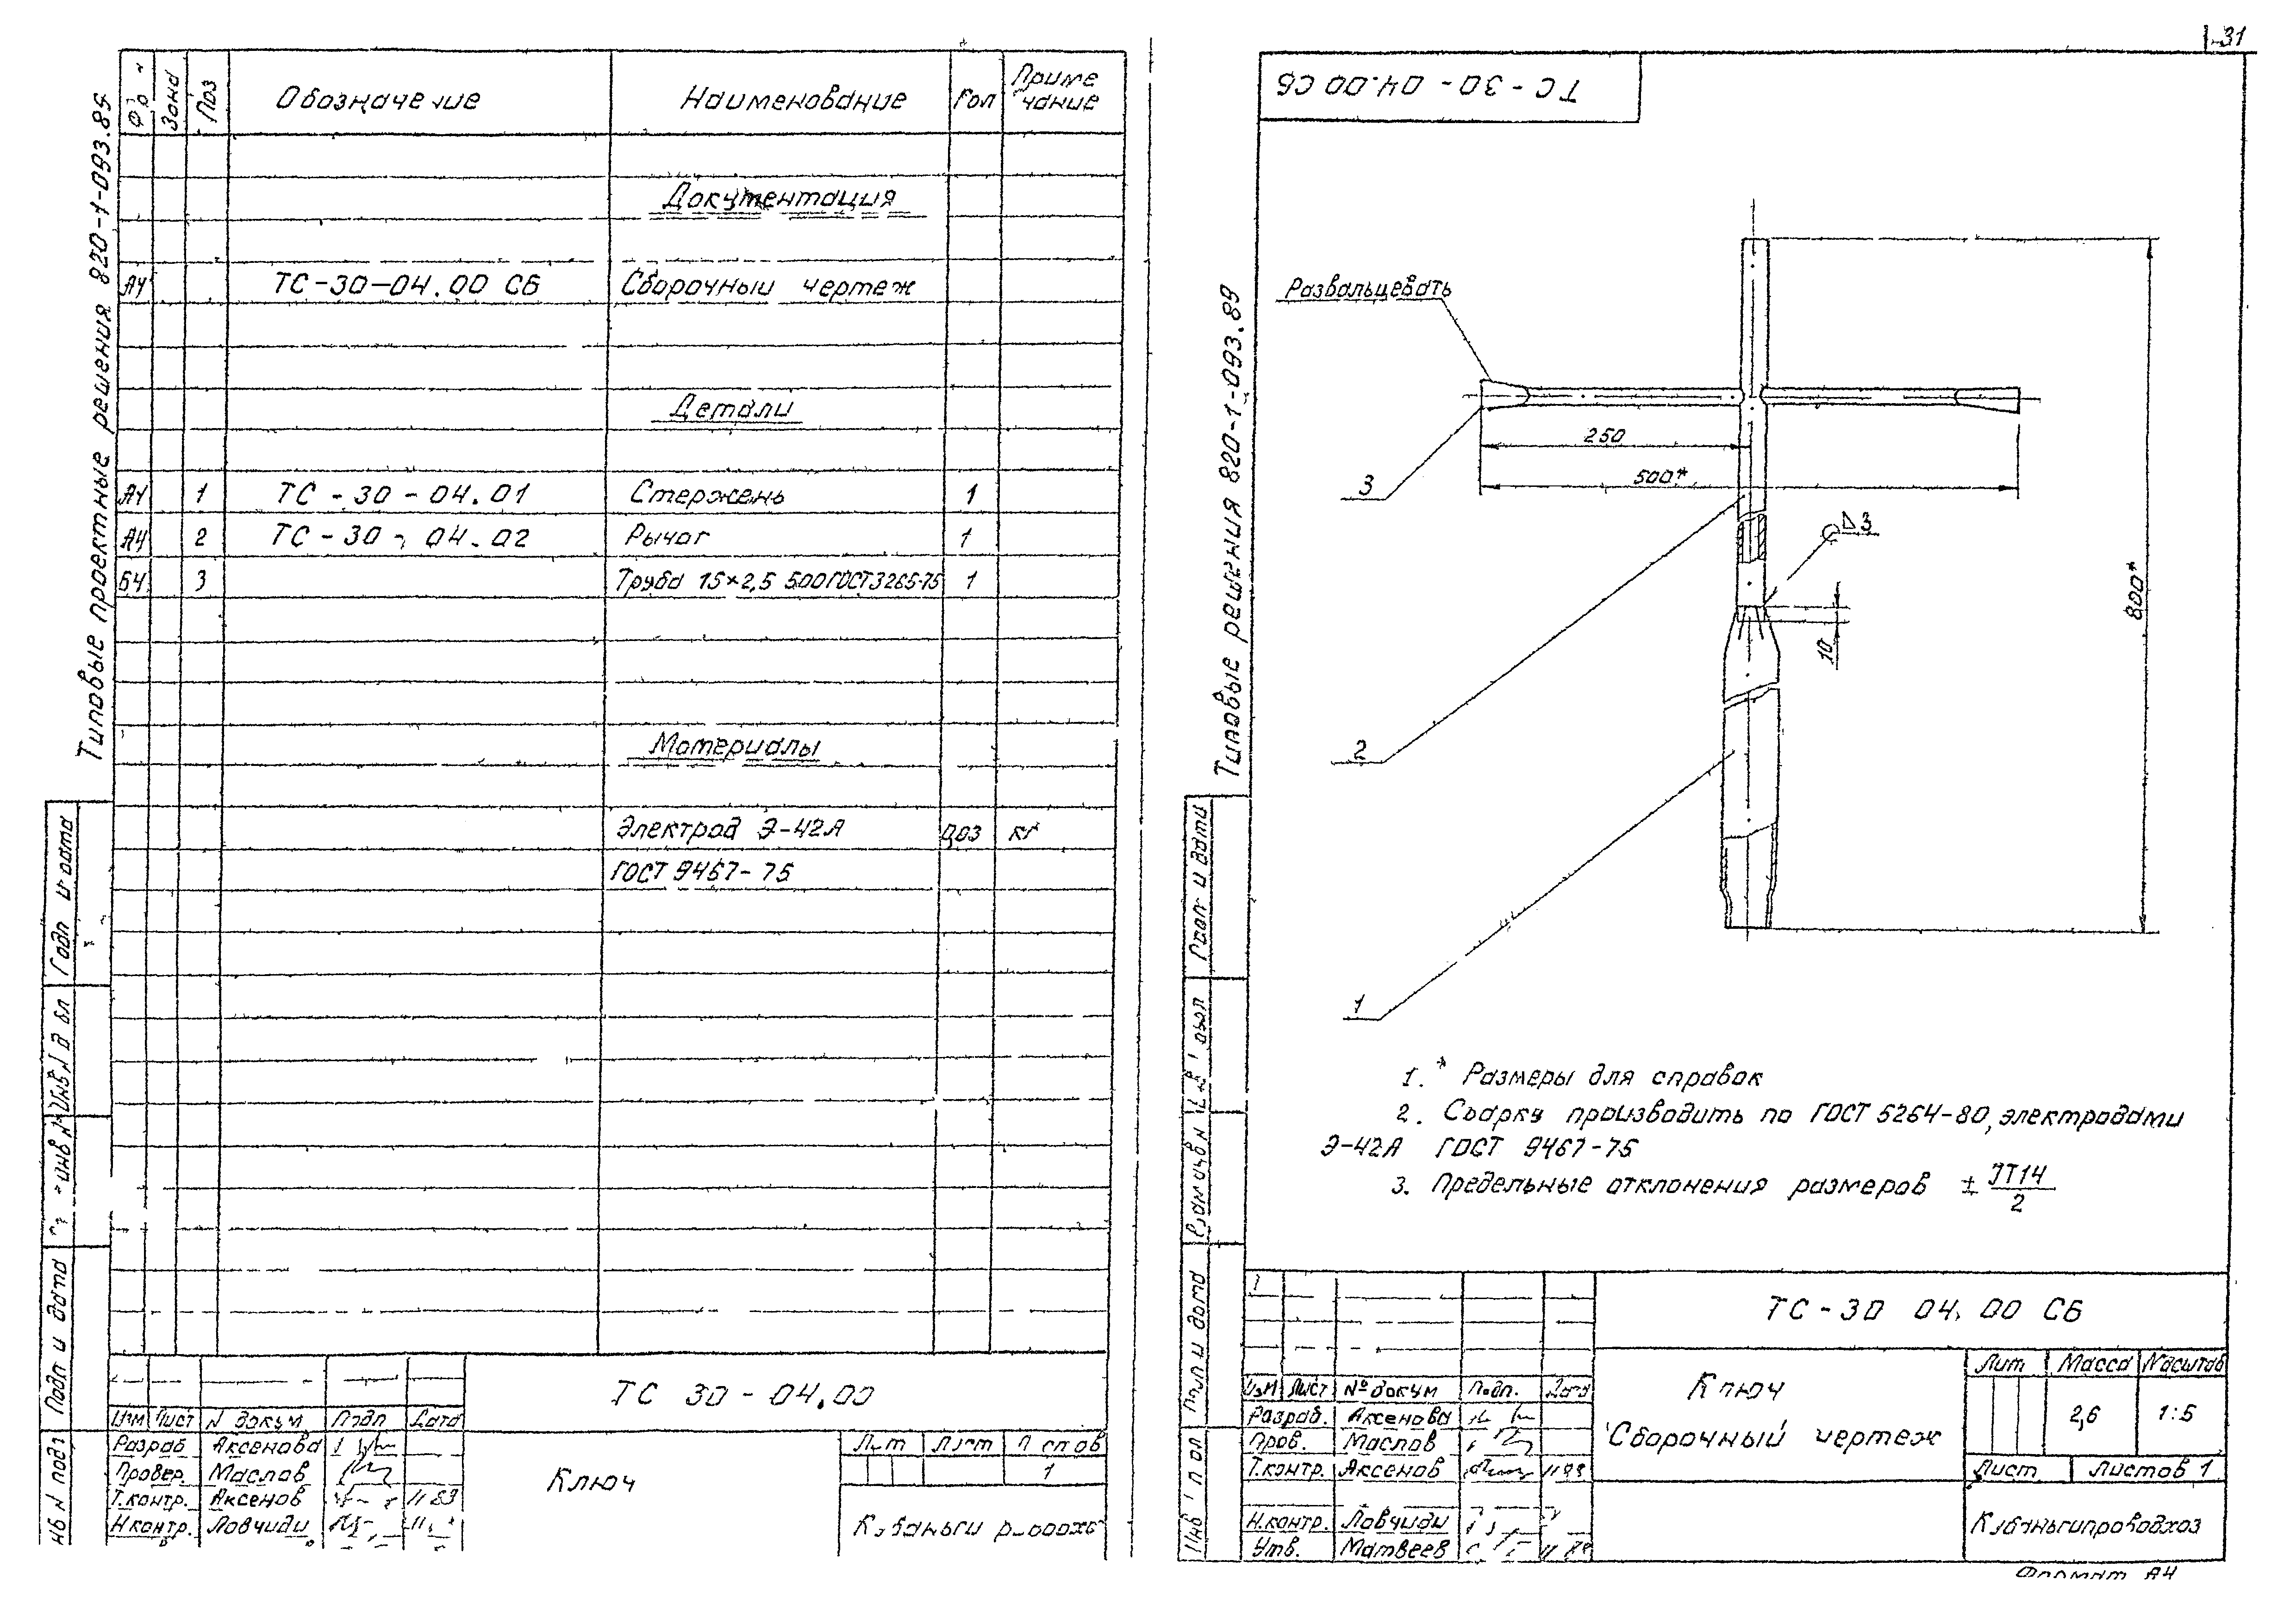 31
Типовые проектные решения 820-1-093.89
Зона
Поз
Обозначение
Наименование
Кол
Приме
чание
Документация
А4 ТС-30-04.00 СБ Сборочный чертеж
Детали
А4 1 ТС-30-04.01 Стержень 1
А4 2 ТС-30-04.02 Рычаг 1
Б4 3 Труба 15×2,5 500 ГОСТ 3265-75 1
Материалы
Электрод Э-42А 0,03 кг
ГОСТ 9467-75
Подп и дата
ТС 30-04.00
Изм Лист N докум Подп Дата
Разраб Аксенова
Провер. Маслов
Т.контр. Аксенов 11 83
Н.контр. Ловчиди
Ключ
Лит Лист
1
ТС-30-04.00 СБ
Типовые решения 820-1-093.89
Развальцевать
250
500*
3
Δ3
800*
10
2
1
1.* Размеры для справок
2. Сварку производить по ГОСТ 5264-80, электродами
Э-42А ГОСТ 9467-75
3. Предельные отклонения размеров ± JT14/2
ТС-30 04.00 СБ
Изм Лист № докум Подп. Дата
Разраб. Аксенова
Пров. Маслов
Т.контр. Аксенов
Н.контр. Ловчиди
Утв. Матвеев
Ключ
Сборочный чертеж
Лит Масса Масштаб
2,6 1:5
Лист Листов 1
Кубаньгипроводхоз
Формат А4